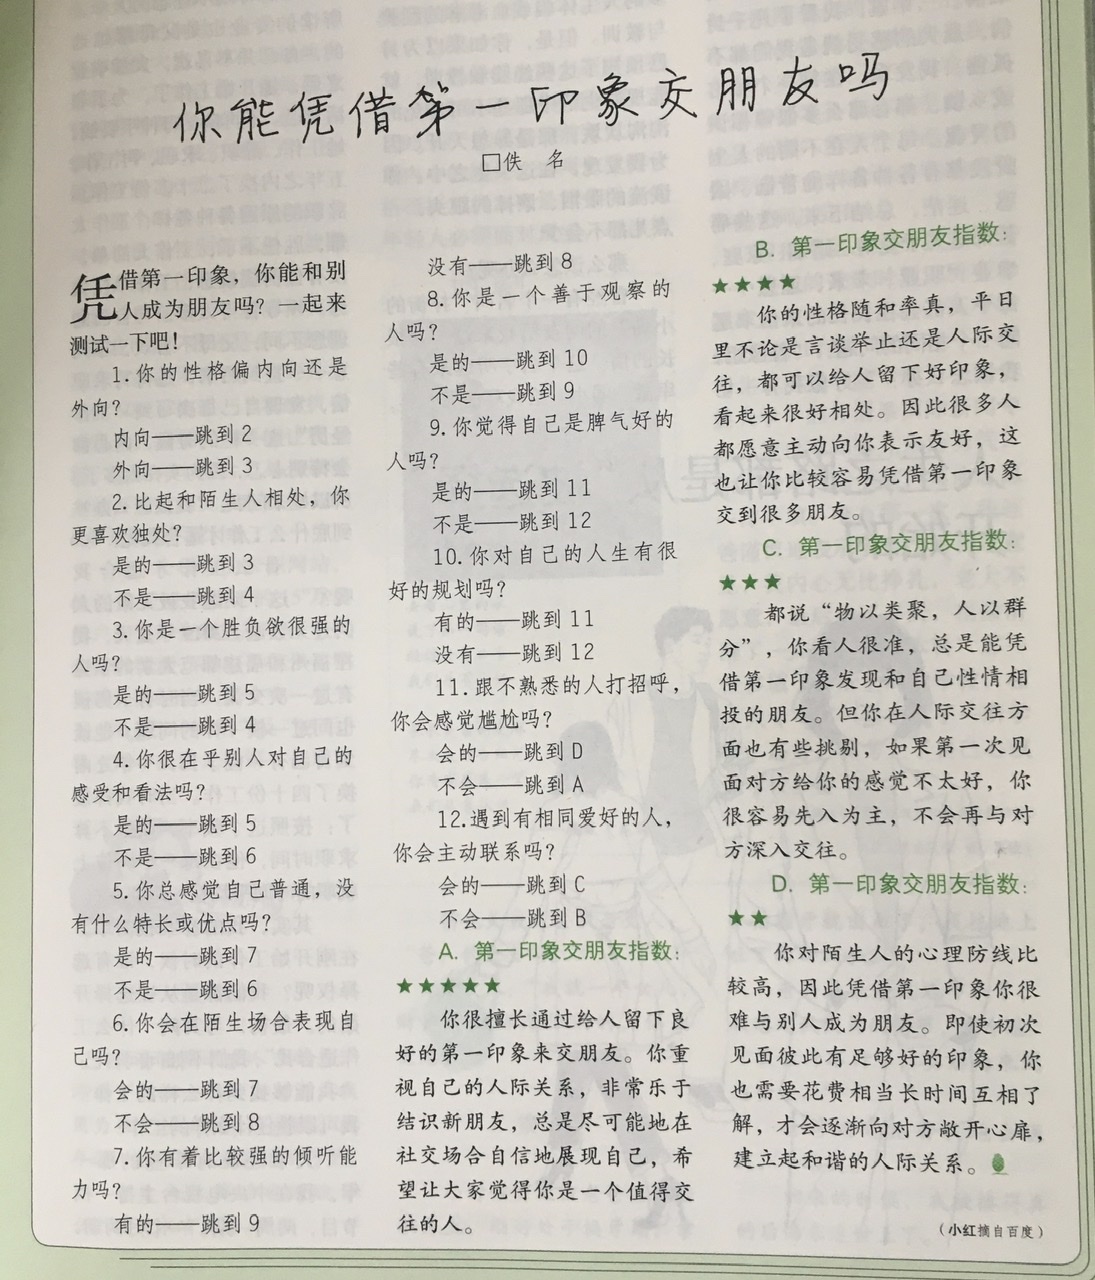 你能凭借第一印象交朋友吗
□佚 名
凭借第一印象，你能和别
人成为朋友吗？一起来
测试一下吧！
1.你的性格偏内向还是
外向？
内向——跳到 2
外向——跳到 3
2.比起和陌生人相处，你
更喜欢独处？
是的——跳到 3
不是——跳到 4
3.你是一个胜负欲很强的
人吗？
是的——跳到 5
不是——跳到 4
4.你很在乎别人对自己的
感受和看法吗？
是的——跳到 5
不是——跳到 6
5.你总感觉自己普通，没
有什么特长或优点吗？
是的——跳到 7
不是——跳到 6
6.你会在陌生场合表现自
己吗？
会的——跳到 7
不会——跳到 8
7.你有着比较强的倾听能
力吗？
有的——跳到 9
没有——跳到 8
8.你是一个善于观察的
人吗？
是的——跳到 10
不是——跳到 9
9.你觉得自己是脾气好的
人吗？
是的——跳到 11
不是——跳到 12
10.你对自己的人生有很
好的规划吗？
有的——跳到 11
没有——跳到 12
11.跟不熟悉的人打招呼，
你会感觉尴尬吗？
会的——跳到 D
不会——跳到 A
12.遇到有相同爱好的人，
你会主动联系吗？
会的——跳到 C
不会——跳到 B
A. 第一印象交朋友指数：
★★★★★
你很擅长通过给人留下良
好的第一印象来交朋友。你重
视自己的人际关系，非常乐于
结识新朋友，总是尽可能地在
社交场合自信地展现自己，希
望让大家觉得你是一个值得交
往的人。
B. 第一印象交朋友指数：
★★★★
你的性格随和率真，平日
里不论是言谈举止还是人际交
往，都可以给人留下好印象，
看起来很好相处。因此很多人
都愿意主动向你表示友好，这
也让你比较容易凭借第一印象
交到很多朋友。
C. 第一印象交朋友指数：
★★★
都说“物以类聚，人以群
分”，你看人很准，总是能凭
借第一印象发现和自己性情相
投的朋友。但你在人际交往方
面也有些挑剔，如果第一次见
面对方给你的感觉不太好，你
很容易先入为主，不会再与对
方深入交往。
D. 第一印象交朋友指数：
★★
你对陌生人的心理防线比
较高，因此凭借第一印象你很
难与别人成为朋友。即使初次
见面彼此有足够好的印象，你
也需要花费相当长时间互相了
解，才会逐渐向对方敞开心扉，
建立起和谐的人际关系。
（小红摘自百度）